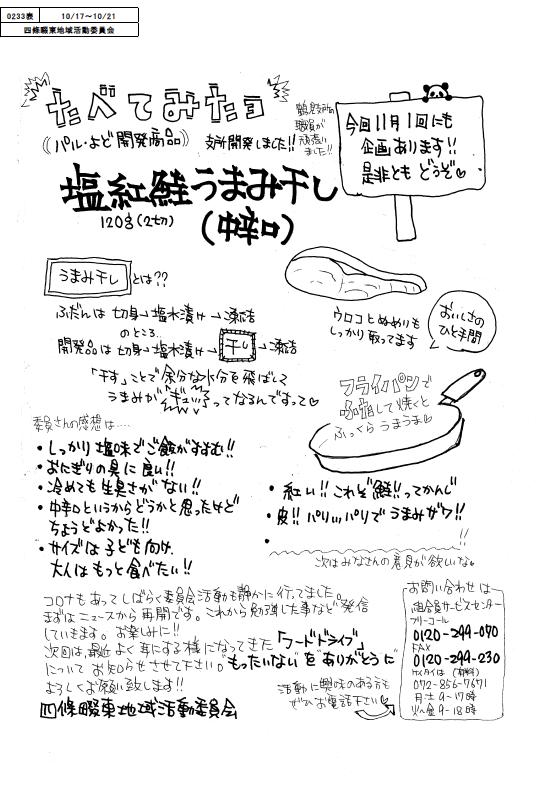 0233表 10/17〜10/21
四條畷東地域活動委員会
たべてみたョ
((パル・よど開発商品)) 支所開発しました!!
鶴見支所の
職員が
頑張り
ました!!
今回11月1回にも
企画あります!!
是非とも どうぞ♡
塩紅鮭うまみ干し
120g(2切) (中辛口)
うまみ干し とは??
ふだんは 切身→塩水漬け→凍結
のところ、
開発品は 切身→塩水漬け→干し→凍結
「干す」ことで余分な水分を飛ばして
うまみが ギュッってなるんですって♡
ウロコとぬめりも
しっかり取ってます
おいしさの
ひと手間
フライパンで
蒸して焼くと
ふっくら うまうま♡
委員さんの感想は....
・しっかり塩味でご飯がすすむ!!
・おにぎりの具に良い!!
・冷めても生臭さがない!!
・中辛口というからどうかと思ったけど
ちょうどよかった!!
・サイズは子ども向け、
大人はもっと食べたい!!
・紅い!!これぞ鮭!!ってかんじ
・皮!!パリッパリで うまみがワ!!
・ !!
次はみなさんの意見が欲しいな♡
コロナもあってしばらく委員会活動も静かに行ってました。
まずはニュースから再開です。これから勉強した事など発信
していきます。お楽しみに!!
次回は、最近よく耳にする様になってきた「フードドライブ」
について お知らせさせて下さい。"もったいない"を"ありがとう"に
よろしくお願い致します!!
四條畷東地域活動委員会
活動に興味のある方も
ぜひお電話下さい♡
お問い合わせは
組合員サービスセンター
フリーコール
0120-299-070
FAX
0120-299-230
ケイタイは(有料)
072-856-7671
月・土 9〜17時
火〜金 9〜18時